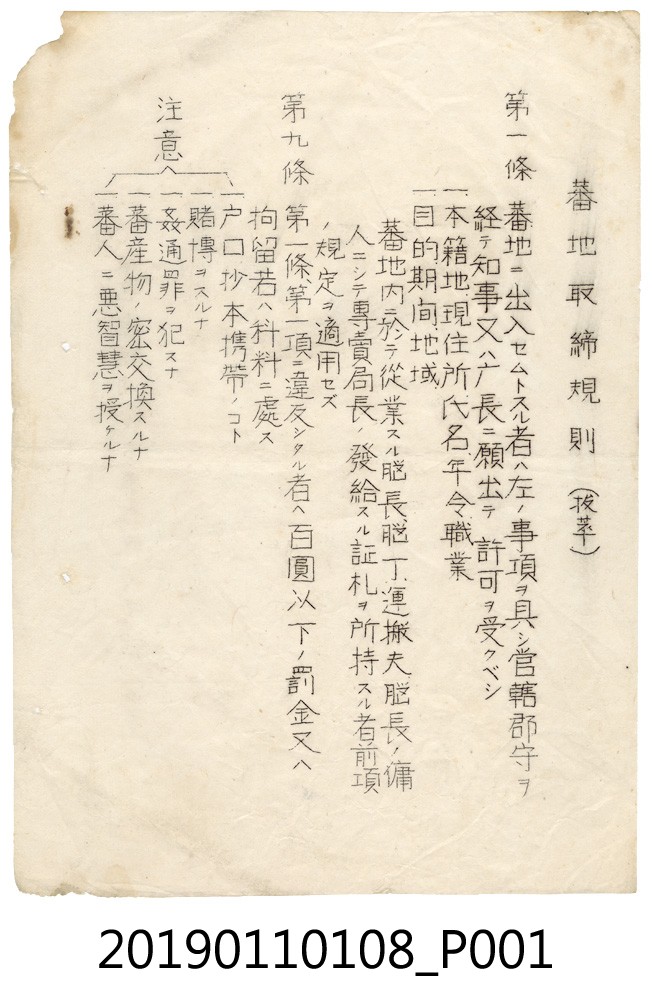 蕃地取締規則（抜萃）
第一條 蕃地ニ出入セムトスル者ハ左ノ事項ヲ具シ官轄郡守ヲ
経テ知事又ハ庁長ニ願出テ許可ヲ受クベシ
一本籍地、現住所、氏名、年令、職業
一目的期间地域
蕃地内ニ於テ従業スル脳長、脳丁、運搬夫脳長ノ傭
人ニシテ専賣局長ノ發給スル証札ヲ所持スル者前項
ノ規定ヲ適用セズ
第九條 第一條第一項ニ違反シタル者ハ百圓以下ノ罰金又ハ
拘留若ハ科料ニ處ス
注意
一戸口抄本携帯ノコト
一賭博ヲスルナ
一姦通罪ヲ犯スナ
一蕃産物ノ密交換スルナ
一蕃人ニ悪智慧ヲ授ケルナ
20190110108_P001